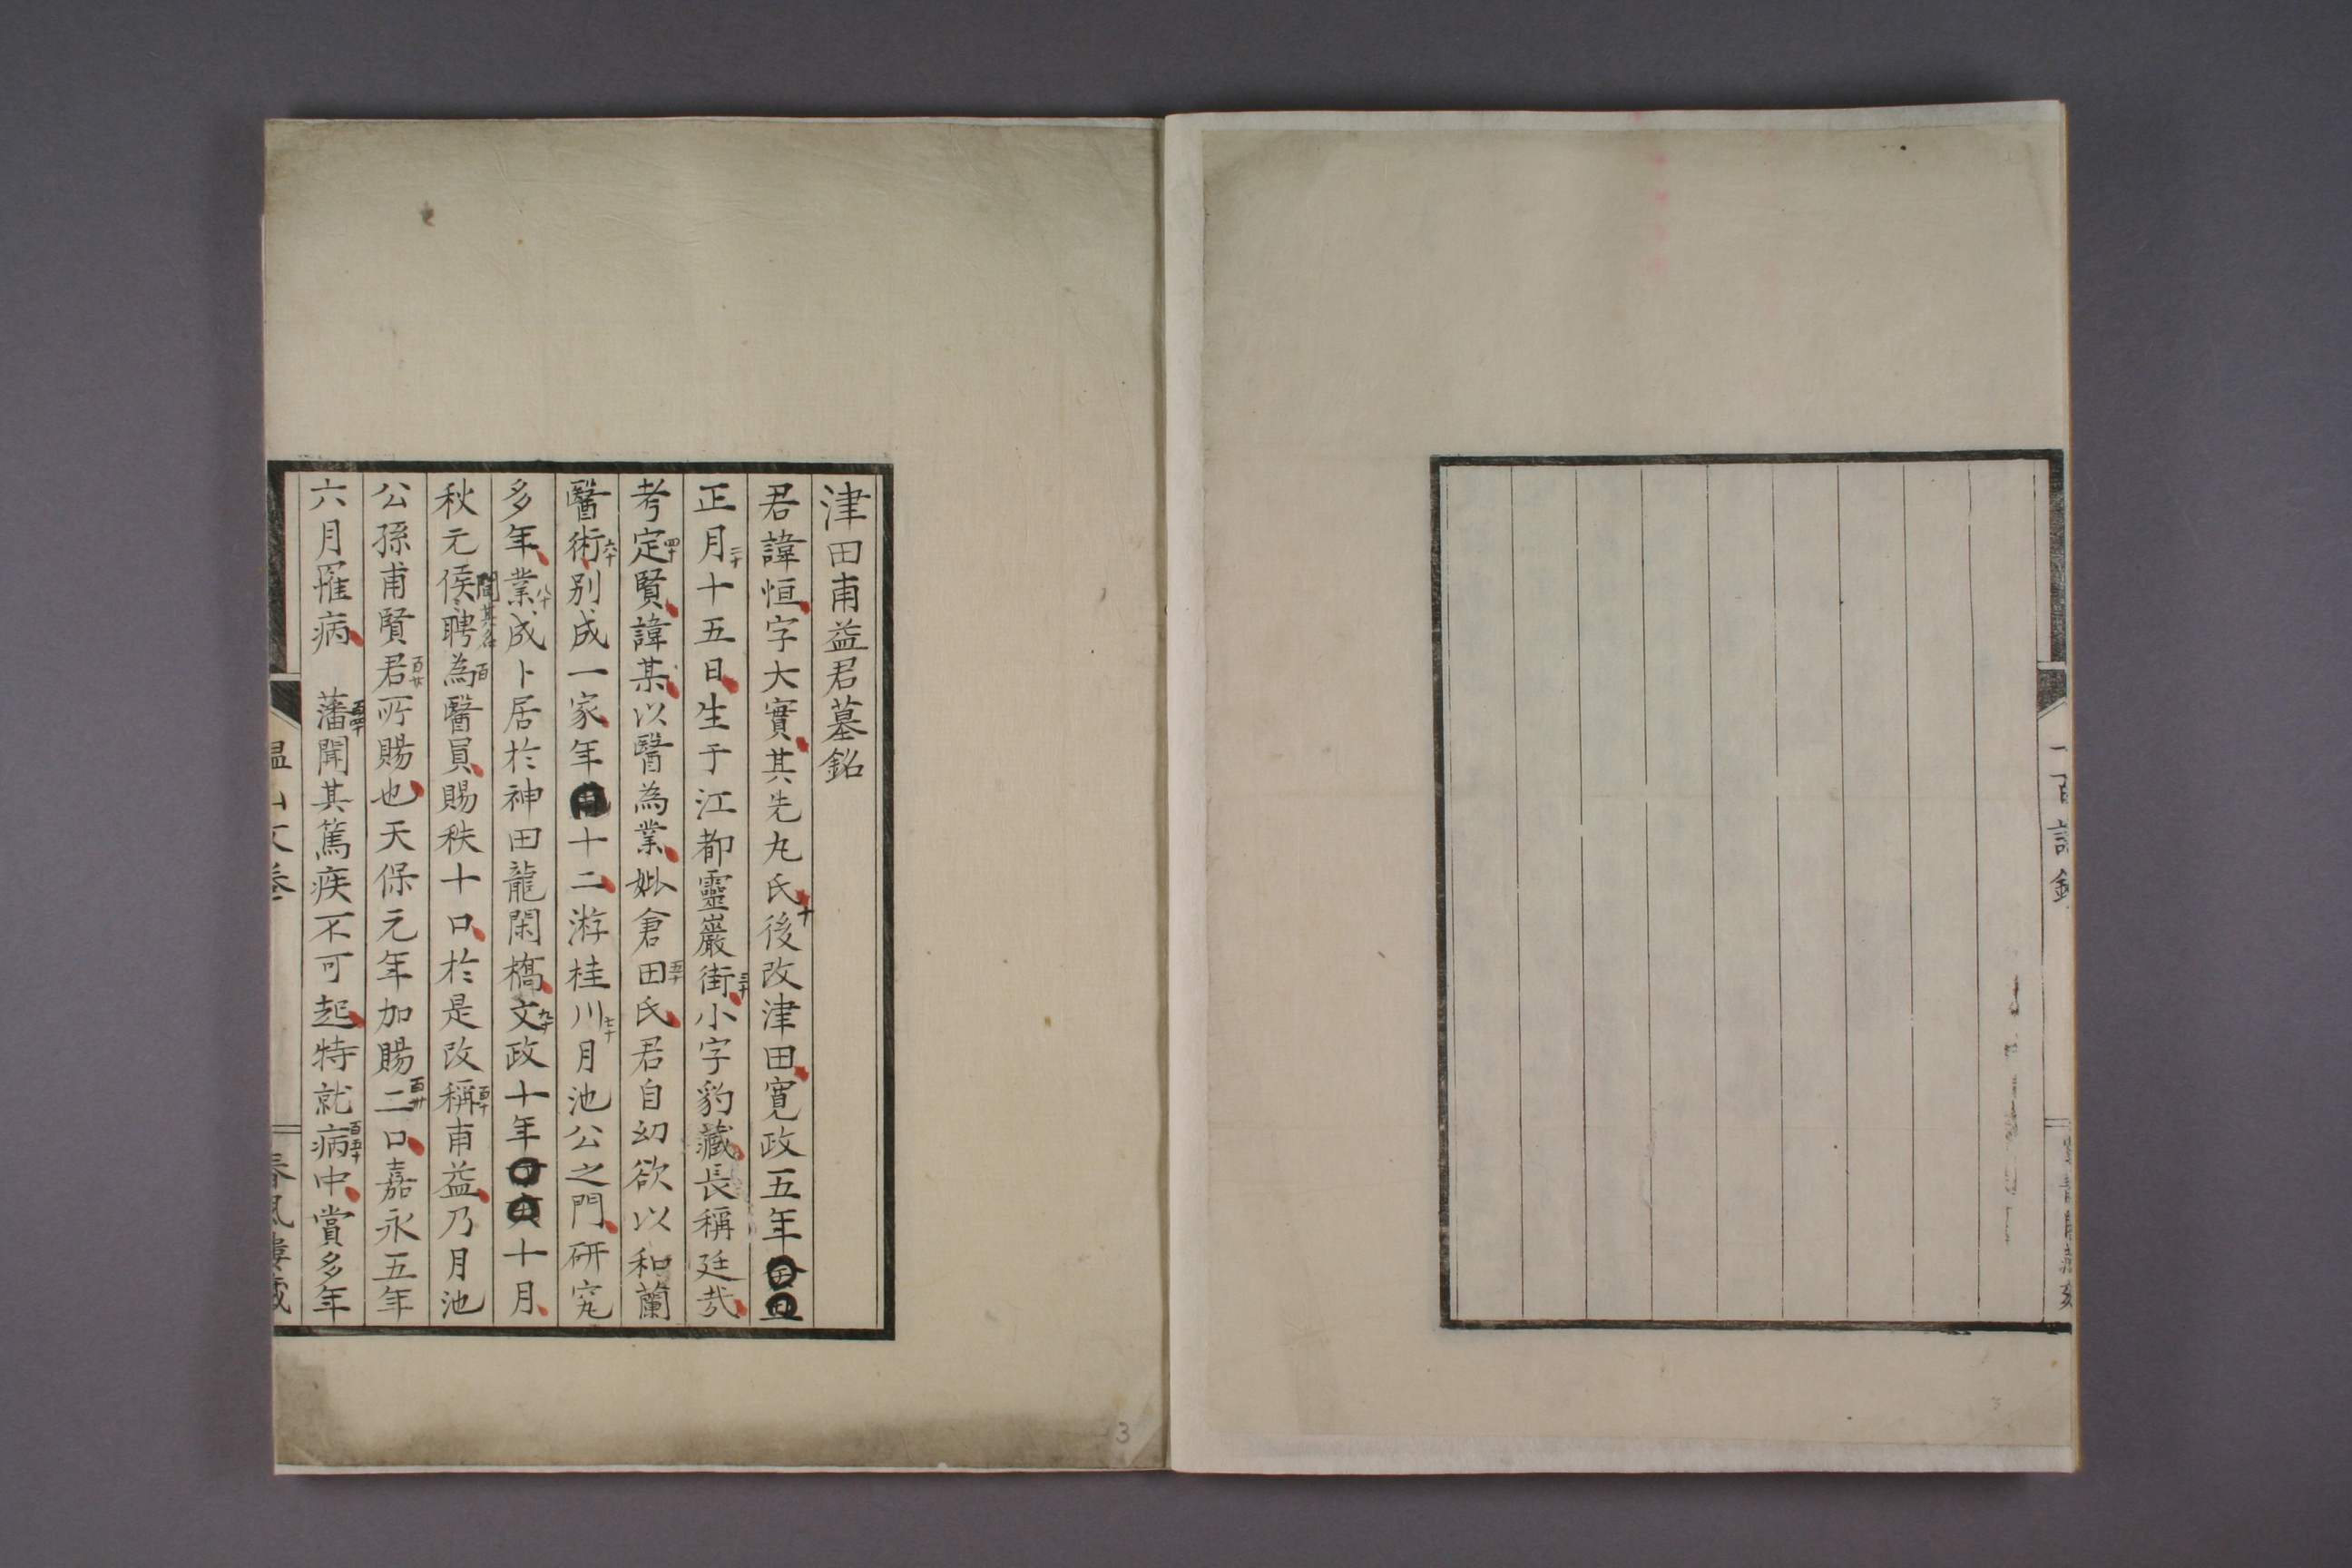 津田甫益君墓銘
君諱恒字大實其先丸氏後改津田寛政五年
十
正月十五日生于江都靈巖街小字豹藏長稱廷哉
二十
三十
考定賢諱某以醫為業妣倉田氏君自幼欲以和蘭
四十
五十
醫術別成一家年十二游桂川月池公之門研究
六十
七十
多年業成卜居於神田龍閑橋文政十年十月
八十
九十
秋元侯聘為醫員賜秩十口於是改稱甫益乃月池
聞其名
百
百十
公孫甫賢君所賜也天保元年加賜二口嘉永五年
百廿
百卅
六月罹病 藩聞其篤疾不可起特就病中賞多年
百四十
百五十
3